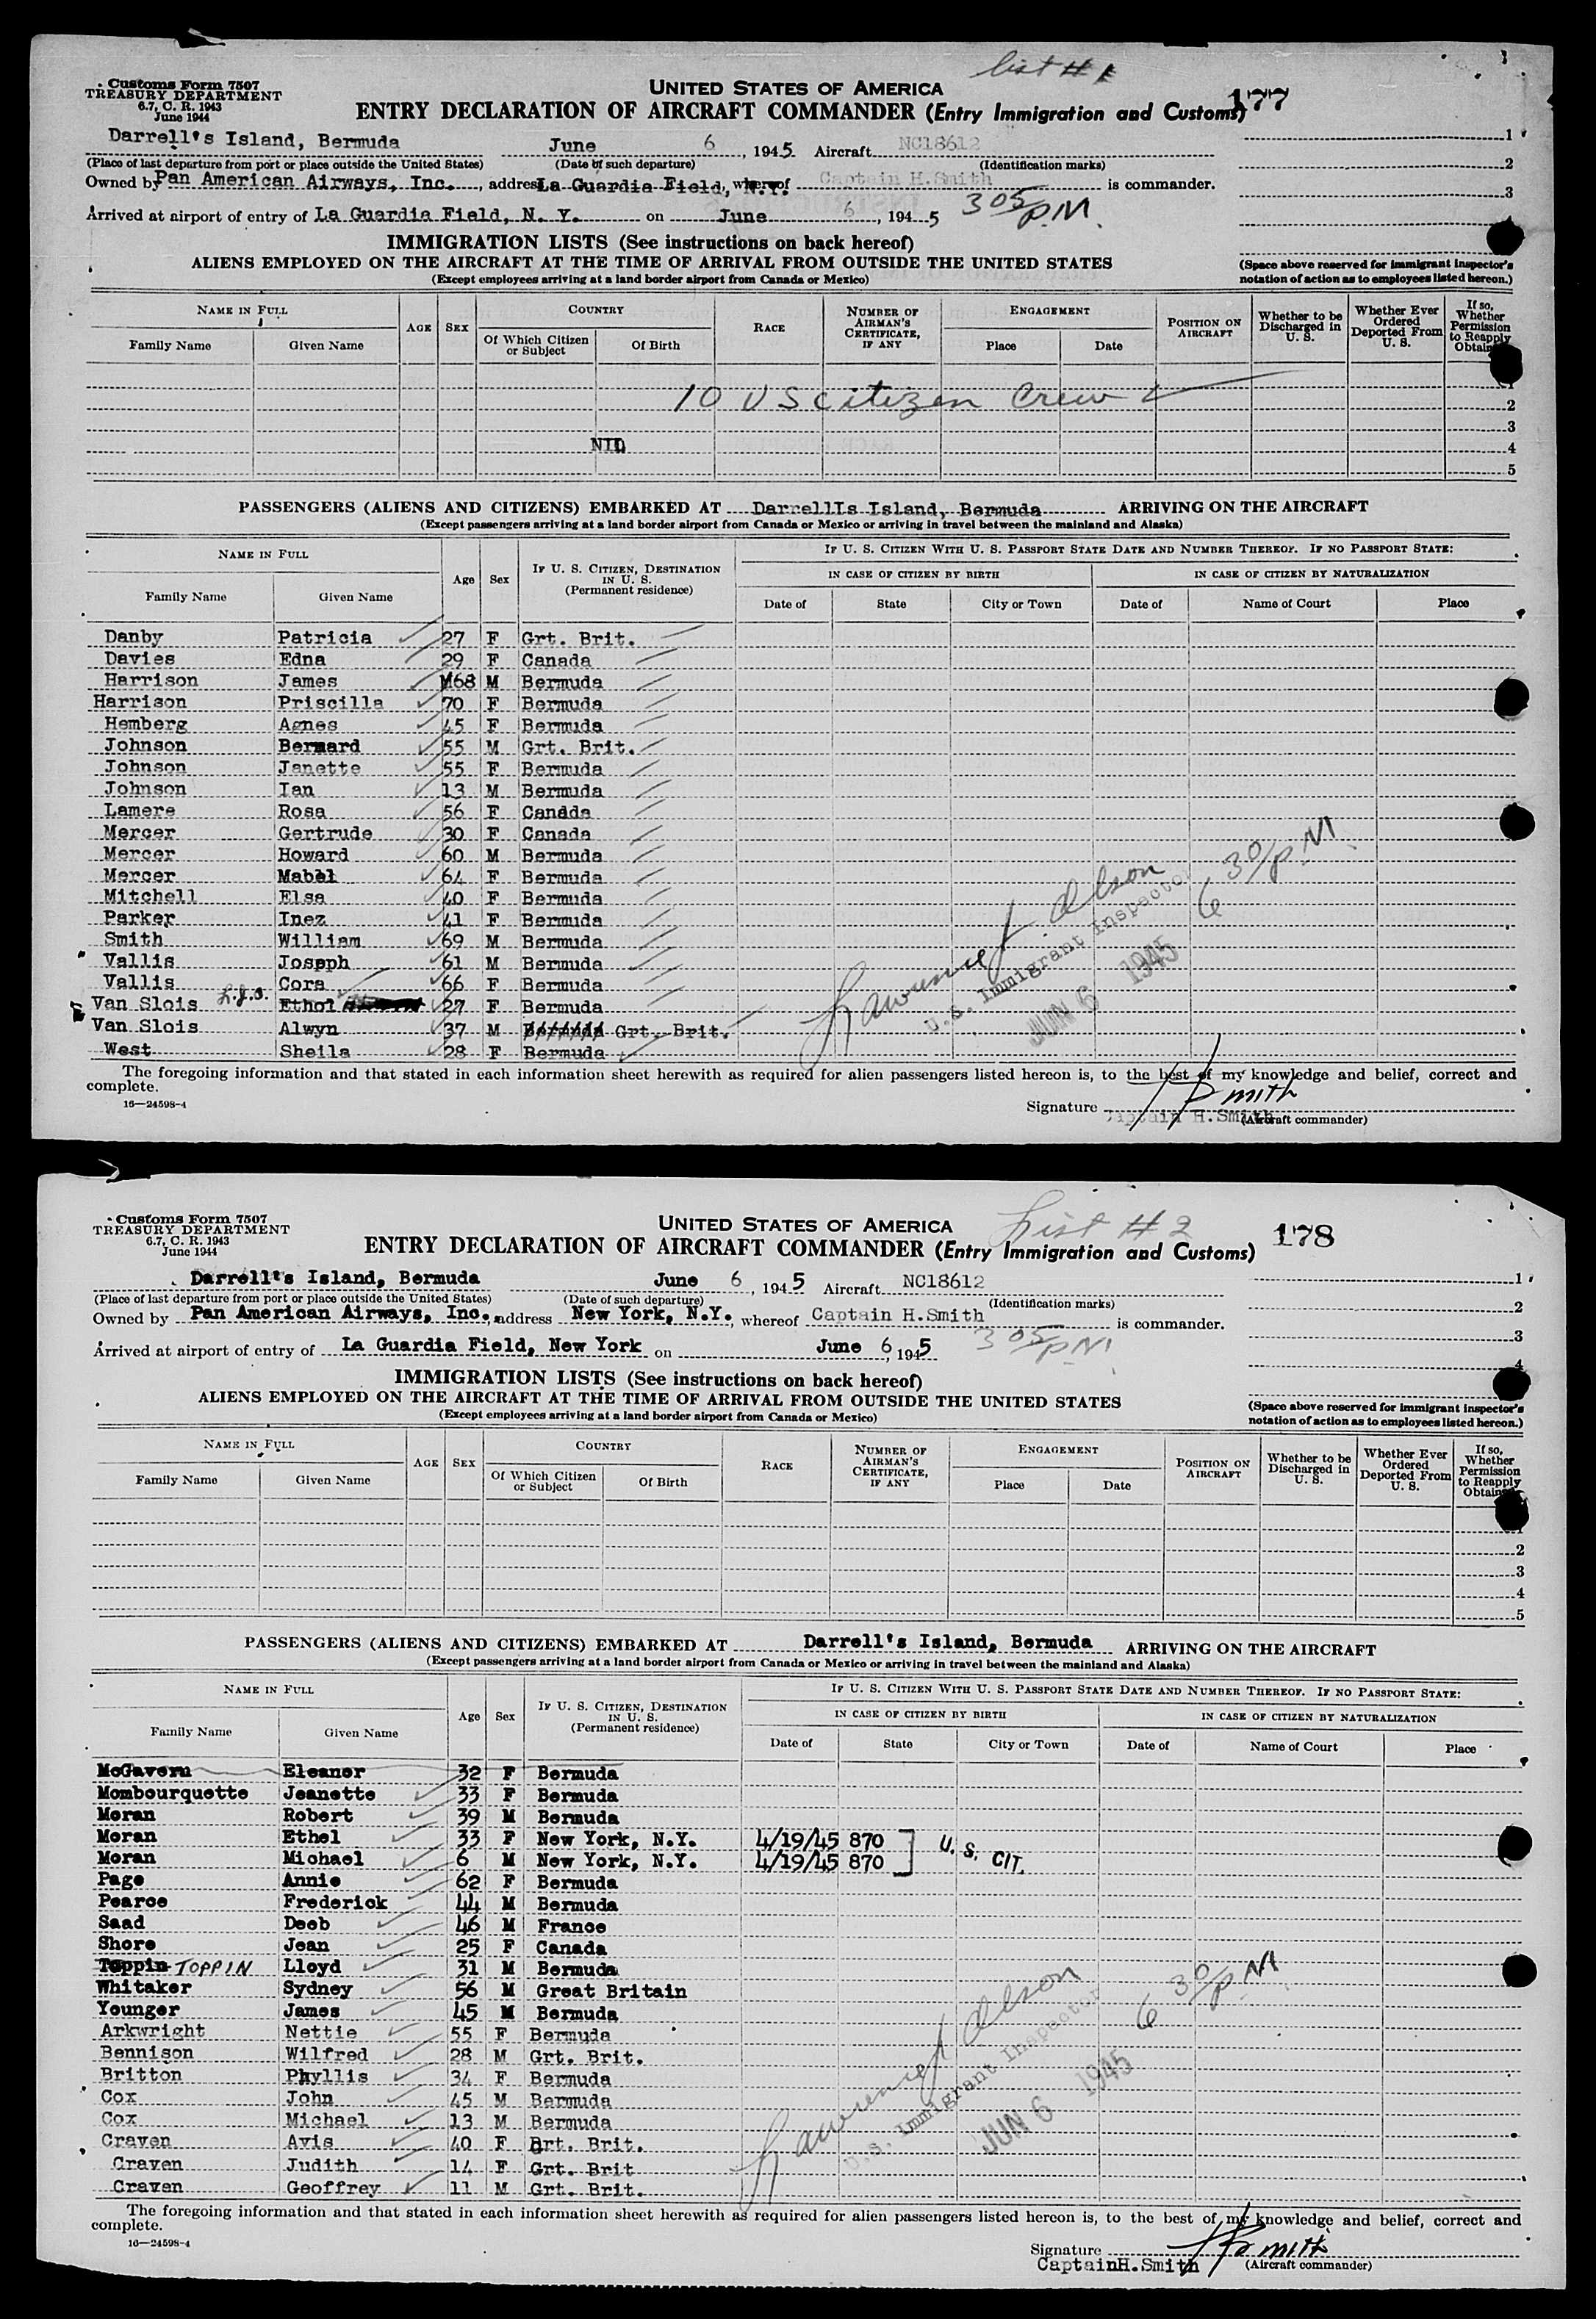 list # 1
Customs Form 7507
TREASURY DEPARTMENT
6.7, C. R. 1943
June 1944
UNITED STATES OF AMERICA
ENTRY DECLARATION OF AIRCRAFT COMMANDER (Entry Immigration and Customs)
177
Darrell's Island, Bermuda June 6, 1945 Aircraft NC18612
(Place of last departure from port or place outside the United States) (Date of such departure) (Identification marks)
Owned by Pan American Airways, Inc., address La Guardia Field, N.Y. whereof Captain H.Smith is commander.
Arrived at airport of entry of La Guardia Field, N. Y. on June 6, 1945 3 05/PM.
1
2
3
4
IMMIGRATION LISTS (See instructions on back hereof)
ALIENS EMPLOYED ON THE AIRCRAFT AT THE TIME OF ARRIVAL FROM OUTSIDE THE UNITED STATES
(Except employees arriving at a land border airport from Canada or Mexico)
(Space above reserved for immigrant inspector's notation of action as to employees listed hereon.)
NAME IN FULL AGE SEX COUNTRY RACE NUMBER OF AIRMAN'S CERTIFICATE, IF ANY ENGAGEMENT POSITION ON AIRCRAFT Whether to be Discharged in U. S. Whether Ever Ordered Deported From U. S. If so, Whether Permission to Reapply
Family Name Given Name Of Which Citizen or Subject Of Birth Place Date
10 US citizen Crew
2
3
NIL 4
5
PASSENGERS (ALIENS AND CITIZENS) EMBARKED AT DarrellIs Island, Bermuda ARRIVING ON THE AIRCRAFT
(Except passengers arriving at a land border airport from Canada or Mexico or arriving in travel between the mainland and Alaska)
NAME IN FULL Age Sex IF U. S. CITIZEN, DESTINATION IN U. S. (Permanent residence) IF U. S. CITIZEN WITH U. S. PASSPORT STATE DATE AND NUMBER THEREOF. IF NO PASSPORT STATE:
IN CASE OF CITIZEN BY BIRTH IN CASE OF CITIZEN BY NATURALIZATION
Family Name Given Name Date of State City or Town Date of Name of Court Place
Danby Patricia 27 F Grt. Brit.
Davies Edna 29 F Canada
Harrison James M68 M Bermuda
Harrison Priscilla 70 F Bermuda
Hemberg Agnes 45 F Bermuda
Johnson Bernard 55 M Grt. Brit.
Johnson Janette 55 F Bermuda
Johnson Ian 13 M Bermuda
Lamere Rosa 56 F Canada
Mercer Gertrude 30 F Canada
Mercer Howard 60 M Bermuda
Mercer Mabel 64 F Bermuda
Mitchell Elsa 40 F Bermuda
Parker Inez 41 F Bermuda
Smith William 69 M Bermuda
Vallis Joseph 61 M Bermuda
Vallis Cora 66 F Bermuda
Van Slois L.J.O. Ethol 27 F Bermuda
Van Slois Alwyn 37 M Bermuda Grt. Brit.
West Sheila 28 F Bermuda
Lawrence J. Olson
U.S. Immigrant Inspector
JUN 6 1945
6 30/PM
The foregoing information and that stated in each information sheet herewith as required for alien passengers listed hereon is, to the best of my knowledge and belief, correct and
complete.
16—24598-4
Signature H Smith
Captain H.Smith (Aircraft commander)
List # 2
Customs Form 7507
TREASURY DEPARTMENT
6.7, C. R. 1943
June 1944
UNITED STATES OF AMERICA
ENTRY DECLARATION OF AIRCRAFT COMMANDER (Entry Immigration and Customs)
178
Darrell's Island, Bermuda June 6, 1945 Aircraft NC18612
(Place of last departure from port or place outside the United States) (Date of such departure) (Identification marks)
Owned by Pan American Airways, Inc., address New York, N.Y., whereof Captain H.Smith is commander.
Arrived at airport of entry of La Guardia Field, New York on June 6, 1945 3 05/PM
1
2
3
4
IMMIGRATION LISTS (See instructions on back hereof)
ALIENS EMPLOYED ON THE AIRCRAFT AT THE TIME OF ARRIVAL FROM OUTSIDE THE UNITED STATES
(Except employees arriving at a land border airport from Canada or Mexico)
(Space above reserved for immigrant inspector's notation of action as to employees listed hereon.)
NAME IN FULL AGE SEX COUNTRY RACE NUMBER OF AIRMAN'S CERTIFICATE, IF ANY ENGAGEMENT POSITION ON AIRCRAFT Whether to be Discharged in U. S. Whether Ever Ordered Deported From U. S. If so, Whether Permission to Reapply
Family Name Given Name Of Which Citizen or Subject Of Birth Place Date
1
2
3
4
5
PASSENGERS (ALIENS AND CITIZENS) EMBARKED AT Darrell's Island, Bermuda ARRIVING ON THE AIRCRAFT
(Except passengers arriving at a land border airport from Canada or Mexico or arriving in travel between the mainland and Alaska)
NAME IN FULL Age Sex IF U. S. CITIZEN, DESTINATION IN U. S. (Permanent residence) IF U. S. CITIZEN WITH U. S. PASSPORT STATE DATE AND NUMBER THEREOF. IF NO PASSPORT STATE:
IN CASE OF CITIZEN BY BIRTH IN CASE OF CITIZEN BY NATURALIZATION
Family Name Given Name Date of State City or Town Date of Name of Court Place
McGavern Eleanor 32 F Bermuda
Mombourquette Jeanette 33 F Bermuda
Moran Robert 39 M Bermuda
Moran Ethel 33 F New York, N.Y. 4/19/45 870 U. S. CIT.
Moran Michael 6 M New York, N.Y. 4/19/45 870
Page Annie 62 F Bermuda
Pearce Frederick 44 M Bermuda
Saad Deeb 46 M France
Shore Jean 25 F Canada
Toppin TOPPIN Lloyd 31 M Bermuda
Whitaker Sydney 56 M Great Britain
Younger James 45 M Bermuda
Arkwright Nettie 55 F Bermuda
Bennison Wilfred 28 M Grt. Brit.
Britton Phyllis 34 F Bermuda
Cox John 45 M Bermuda
Cox Michael 13 M Bermuda
Craven Avis 40 F Grt. Brit.
Craven Judith 14 F Grt. Brit
Craven Geoffrey 11 M Grt. Brit.
Lawrence J Olson
U.S. Immigrant Inspector
JUN 6 1945
6 30/PM
The foregoing information and that stated in each information sheet herewith as required for alien passengers listed hereon is, to the best of my knowledge and belief, correct and
complete.
16—24598-4
Signature H Smith
CaptainH.Smith (Aircraft commander)